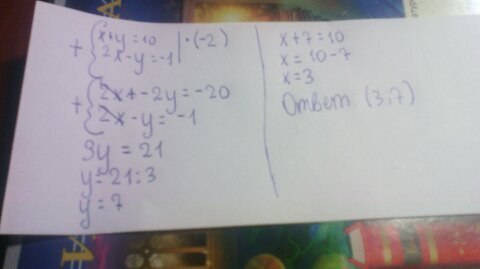 + { x+y=10 | ·(-2)
2x-y=-1
+ { 2x+-2y=-20
2x-y=-1
3y=21
y=21:3
y=7
x+7=10
x=10-7
x=3
Ответ: (3;7)